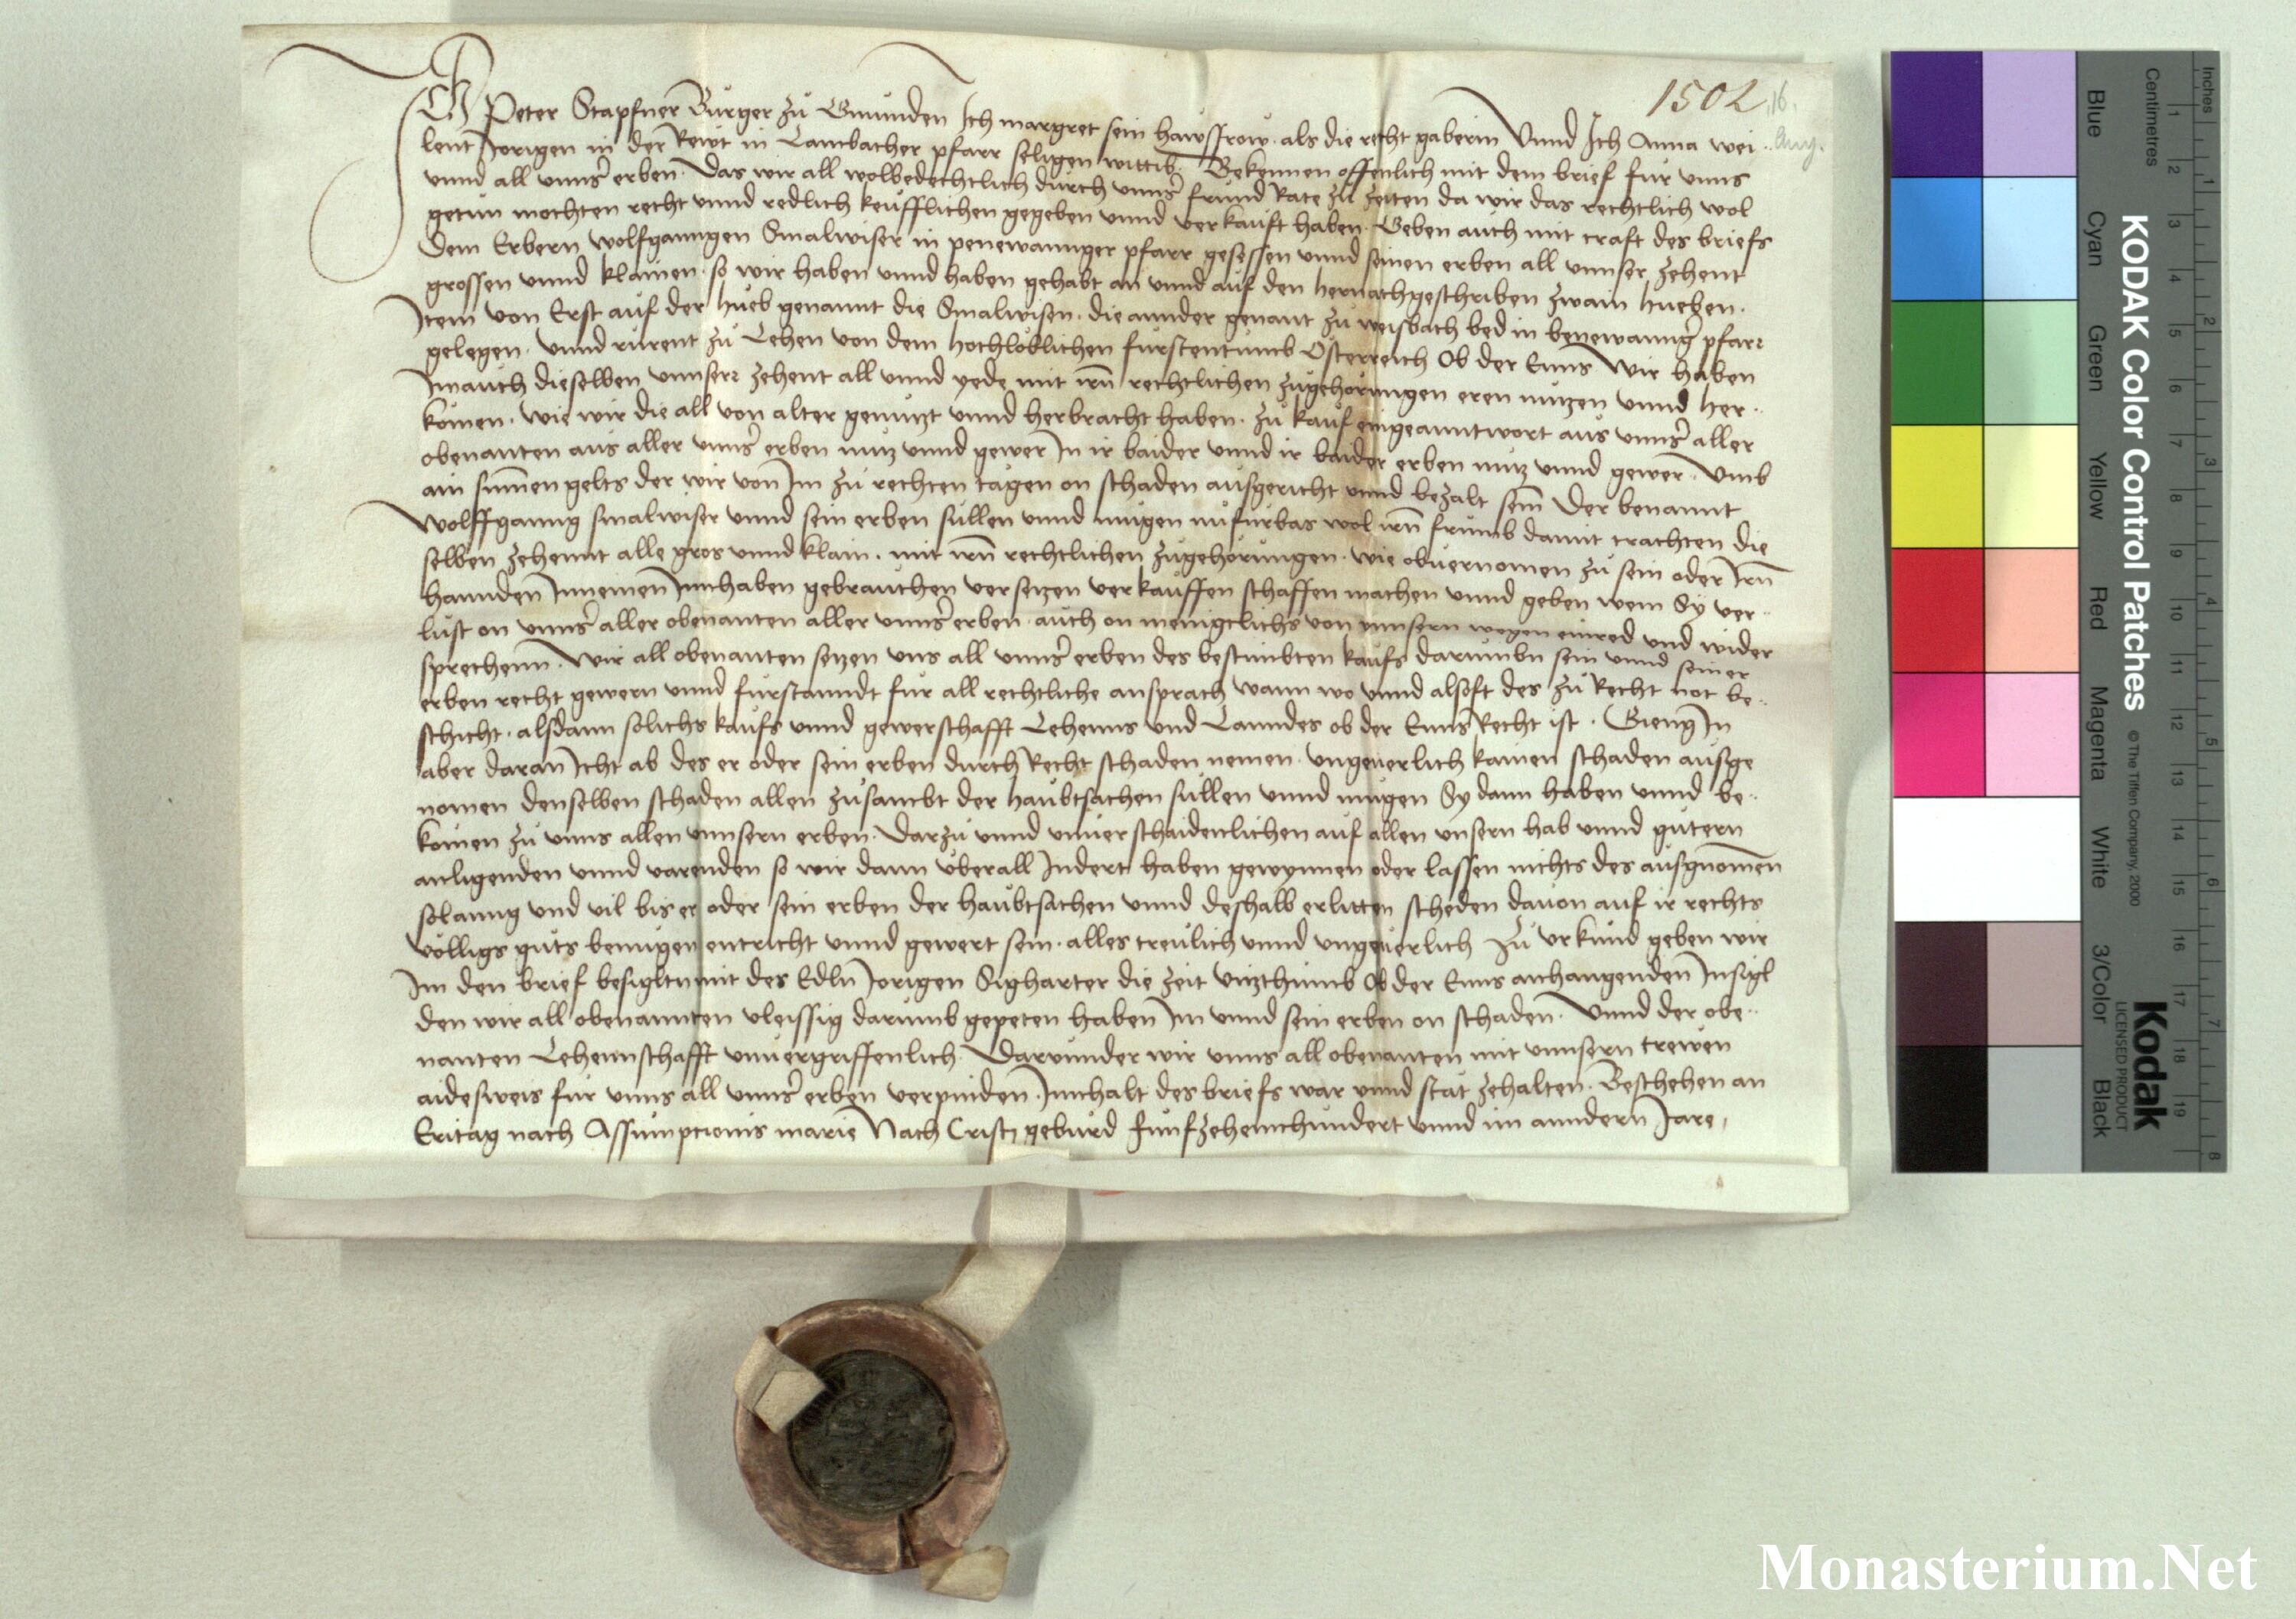 1502 16. Aug.
Ich Peter Stapfner Burger zu Gmunden Ich margret sein hawsfrow als die recht gaberin Unnd Ich Anna wei
lent Jorigen in der Rewt in Lambacher pfarr seligen wittib Bekennen offenlich mit dem brief fur unns
unnd all unnser erben Das wir all wolbedechtlich durch unnser frund Rate zu zeiten da wir das rechtlich wol
getun mochten recht unnd redlich keufflichen gegeben unnd verkauft haben Geben auch mit craft des briefs
Dem Erbern wolfganngen Smalwiser in penewannger pfarr gesessen unnd seinen erben all unnser zehent
grossen unnd klainen so wir haben unnd haben gehabt an unnd auf den hernachgeschriben zwain hueben
Item von Erst auf der hueb genannt die Smalwisen die annder genant zu weisbach bed in benewannger pfarr
gelegen Unnd rurent zu Lehen von dem hochloblichen furstentumb Osterreich Ob der Enns Wir haben
Im auch dieselben unnserr zehent all unnd yede mit irn rechtlichen zugehorungen eren nutzen unnd her
komen wie wir die all von alter genutzt unnd herbracht haben zu kauf eingeanntwort aus unnser aller
obenanten aus aller unnser erben nutz unnd gewer In ir baider unnd ir baider erben nutz unnd gewer Umb
ain sumen gelts der wir von Im zu rechten tagen on schaden ausgericht unnd bezalt sein Der benannt
Wolffganng smalwiser unnd sein erben sullen unnd mugen nu furbas wol irn frumb damit trachten die
selben zehennt alle gros unnd klain mit irn rechtlichen zugehorungen wie obvernomen zu sein oder Irn
hannden Innemen Innhaben gebrauchen versetzen verkauffen schaffen machen unnd geben wem Sy ver
lust on unnser aller obenanten aller unnser erben auch on menigclichs von unnsern wegen einred und wider
sprechenn Wir all obenanten setzen uns all unnser erben des bestimbten kaufs darumbn sein unnd seiner
erben recht gewern unnd furstanndt fur all rechtliche ansprach wann wo unnd alsoft des zu Recht not be
schicht alsdann solichs kaufs unnd gewerschafft Lehenns und Lanndes ob der Enns Recht ist Gieng In
aber daran Icht ab des er oder sein erben durch Recht schaden nemen ungeverlich kainen schaden ausge
nomen denselben schaden allen zusambt der haubtsachen sullen unnd mugen Sy dann haben unnd be
komen zu unns allen unnsern erben Darzu unnd unverschaidenlichen auf allen unsern hab unnd gutern
anligenden unnd varenden so wir dann uberall Indert haben gewynnen oder lassen nichts des ausgnomen
solanng und vil bis er oder sein erben der haubtsachen unnd deshalb erlitten scheden davon auf ir rechts
volligs guts benugen entricht unnd gewert sein alles treulich unnd ungeverlich Zu urkund geben wir
Im den brief besigltn mit des Edln Jorigen Sigharter die zeit vitzthumb Ob der Enns anhangenden Insigl
den wir all obenannten vleissig darumb gepeten haben Im unnd sein erben on schaden Unnd der obe
nanten Lehennschafft unvergriffenlich Darunnder wir unns all obenanten mit unnsern trewen
aidesweis fur unns all unnser erben verpinden Innhalt des briefs war unnd stat zehalten Beschehen an
Eritag nach Assumpcionis marie Nach Cristi geburd funfzehenhundert unnd im anndern Jare
Inches
Centimetres
KODAK Color Control Patches
© The Tiffen Company, 2000
Blue Cyan Green Yellow Red Magenta White 3/Color Black
Kodak
LICENSED PRODUCT
Monasterium.Net